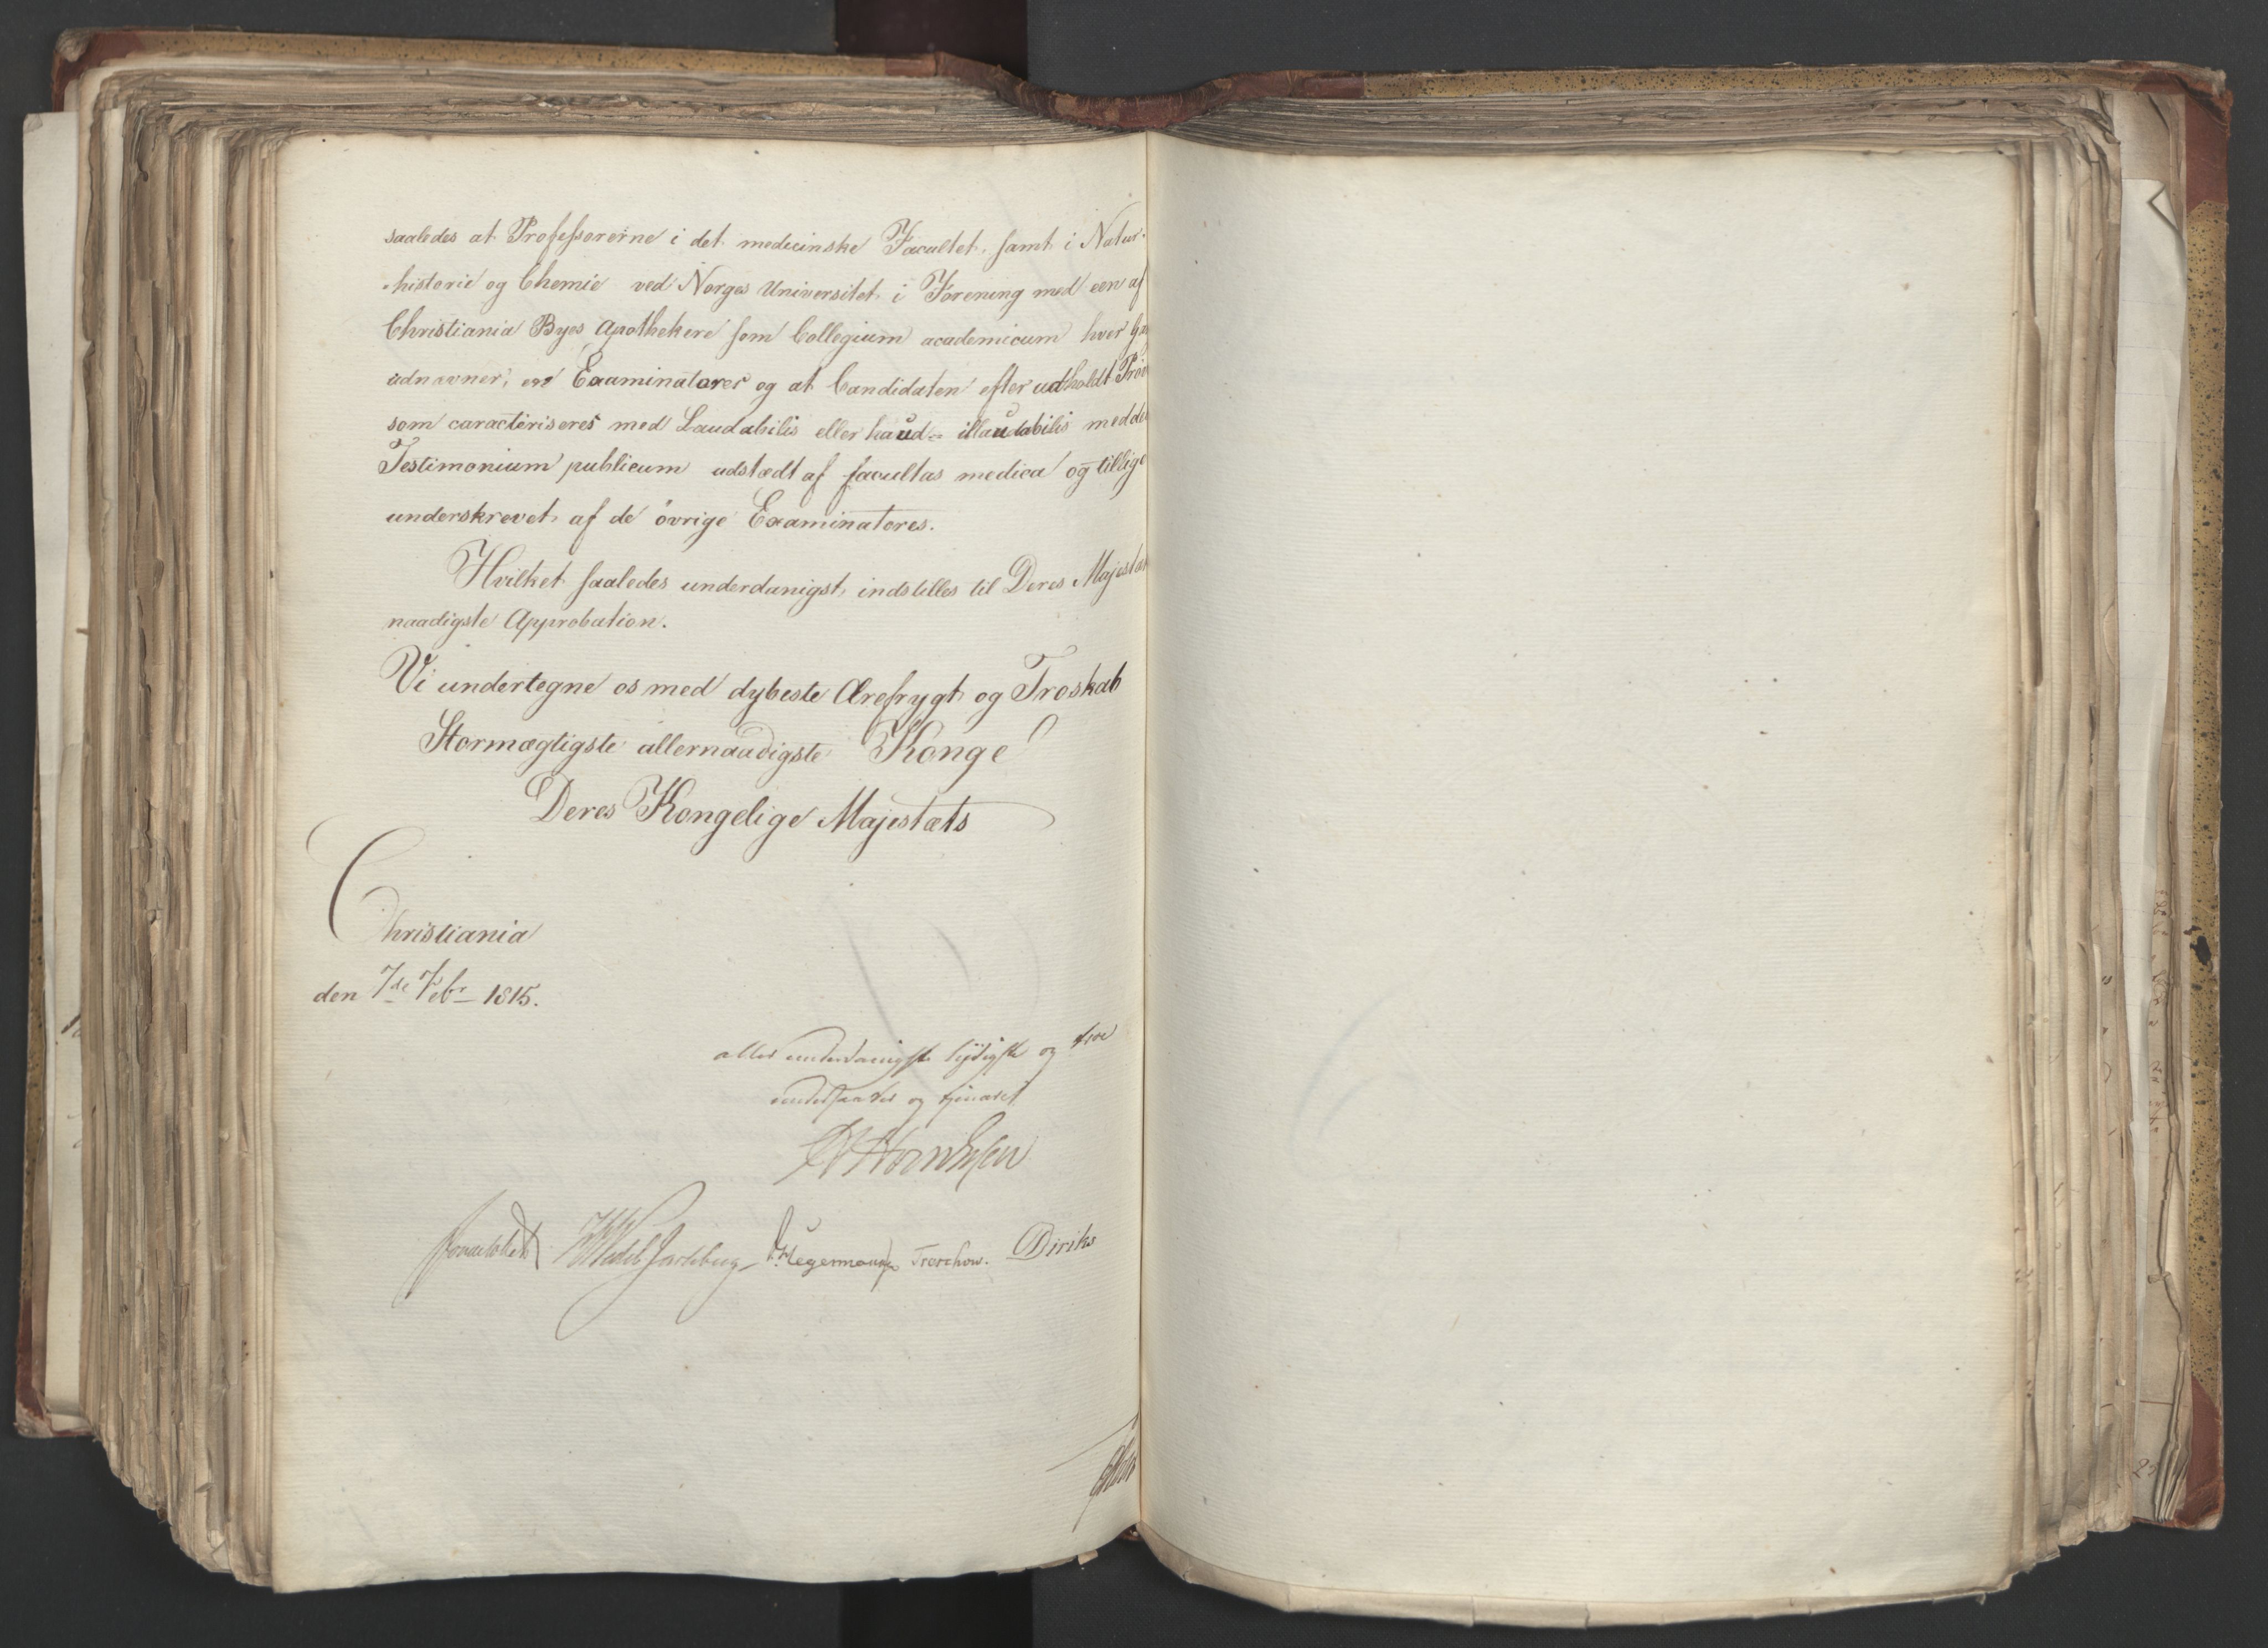 saaledes at Professorerne i det medicinske Facultet, samt i Natur-
-historie og Chemie ved Norges Universitet i Forening med een af
Christiania Byes Apothekere som Collegium academicum hver
udnævner, ere Examinatorer og at Candidaten efter udholdt
som caracteriseres med Laudabilis eller haud- illaudabilis
Testimonium publicum udstædt af facultas medica og tillige
underskrevet af de övrige Examinatores.
Hvilket saaledes underdanigst indstilles til Deres
naadigste Approbation.
Vi undertegne os med dybeste Ærefrygt og Troskab
Stormægtigste allernaadigste Konge!
Deres Kongelige Majestæts
Christiania
den 7de Febr 1815.
allerunderdanigste lydigste og troe
undersaatter og tjenere
Sommerhielm HWedel Jarlsberg Hegermann Treschow. Diriks